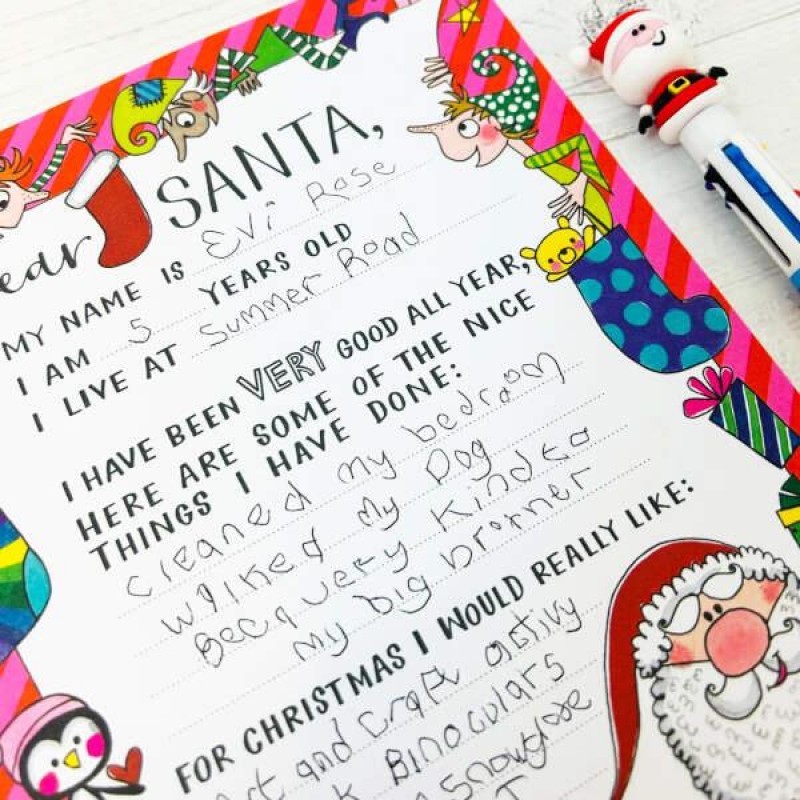 ear SANTA,
MY NAME IS Evi Rose
I AM 5 YEARS OLD
I LIVE AT Summer Road
I HAVE BEEN VERY GOOD ALL YEAR,
HERE ARE SOME OF THE NICE
THINGS I HAVE DONE:
cleaned my bedroom
wilked my Dog
Becq very Kind to
my big brorner
FOR CHRISTMAS I WOULD REALLY LIKE:
and craft activy
Binoculars
snowglose